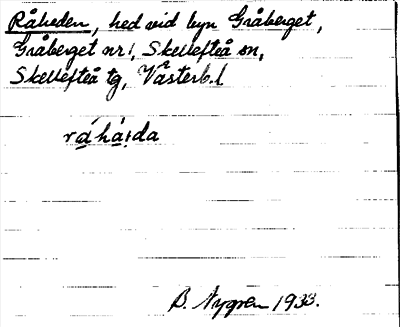 Råheden, hed vid byn Gråberget,
Gråberget nr 1, Skellefteå sn,
Skellefteå tg, Västerb. l.
B. Nygren 1933.